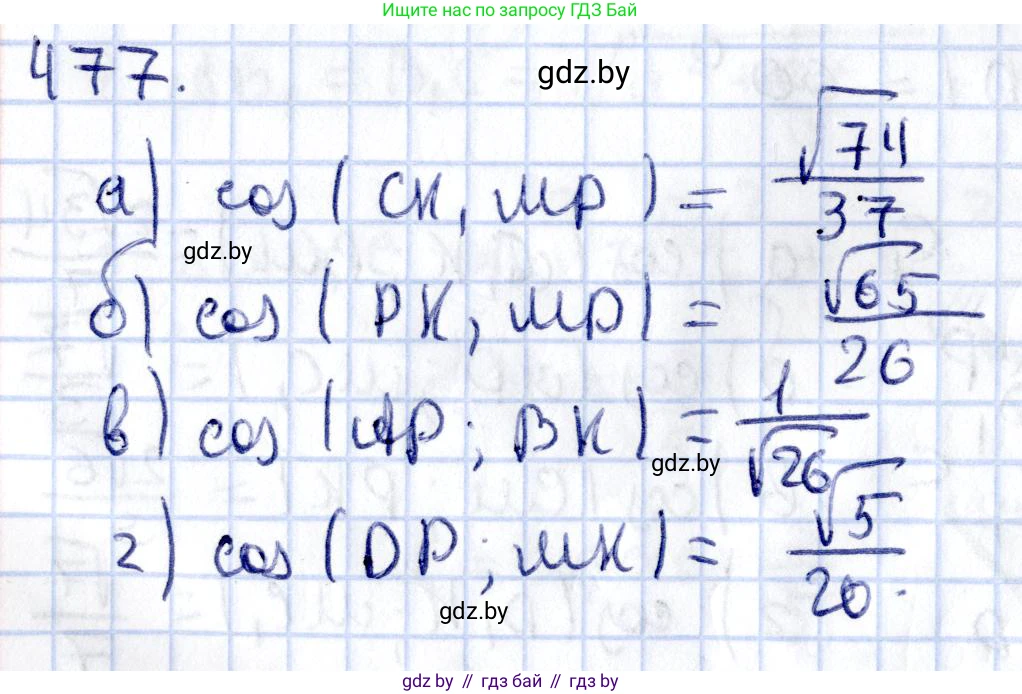 Ищите нас по запросу ГДЗ Бай
477.
gdz.by
а) cos(CK, MP) = √74/37
gdz.by
б) cos(PK, MP) = √65/26
в) cos(AP; BK) = 1/√26
gdz.by
г) cos(DP; MK) = √5/20.
gdz.by
gdz by // гдз бай // гдз by